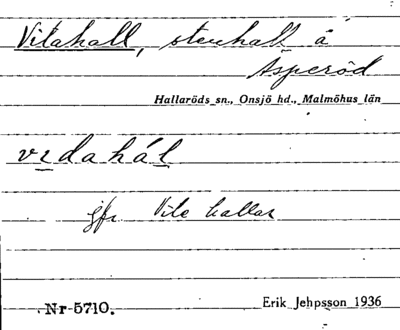 Vitahall, stenhall å
Asperöd
Hallaröds sn., Onsjö hd., Malmöhus län
vɪdahál
jfr Vite hallar
Nr 5710. Erik Jeppsson 1936